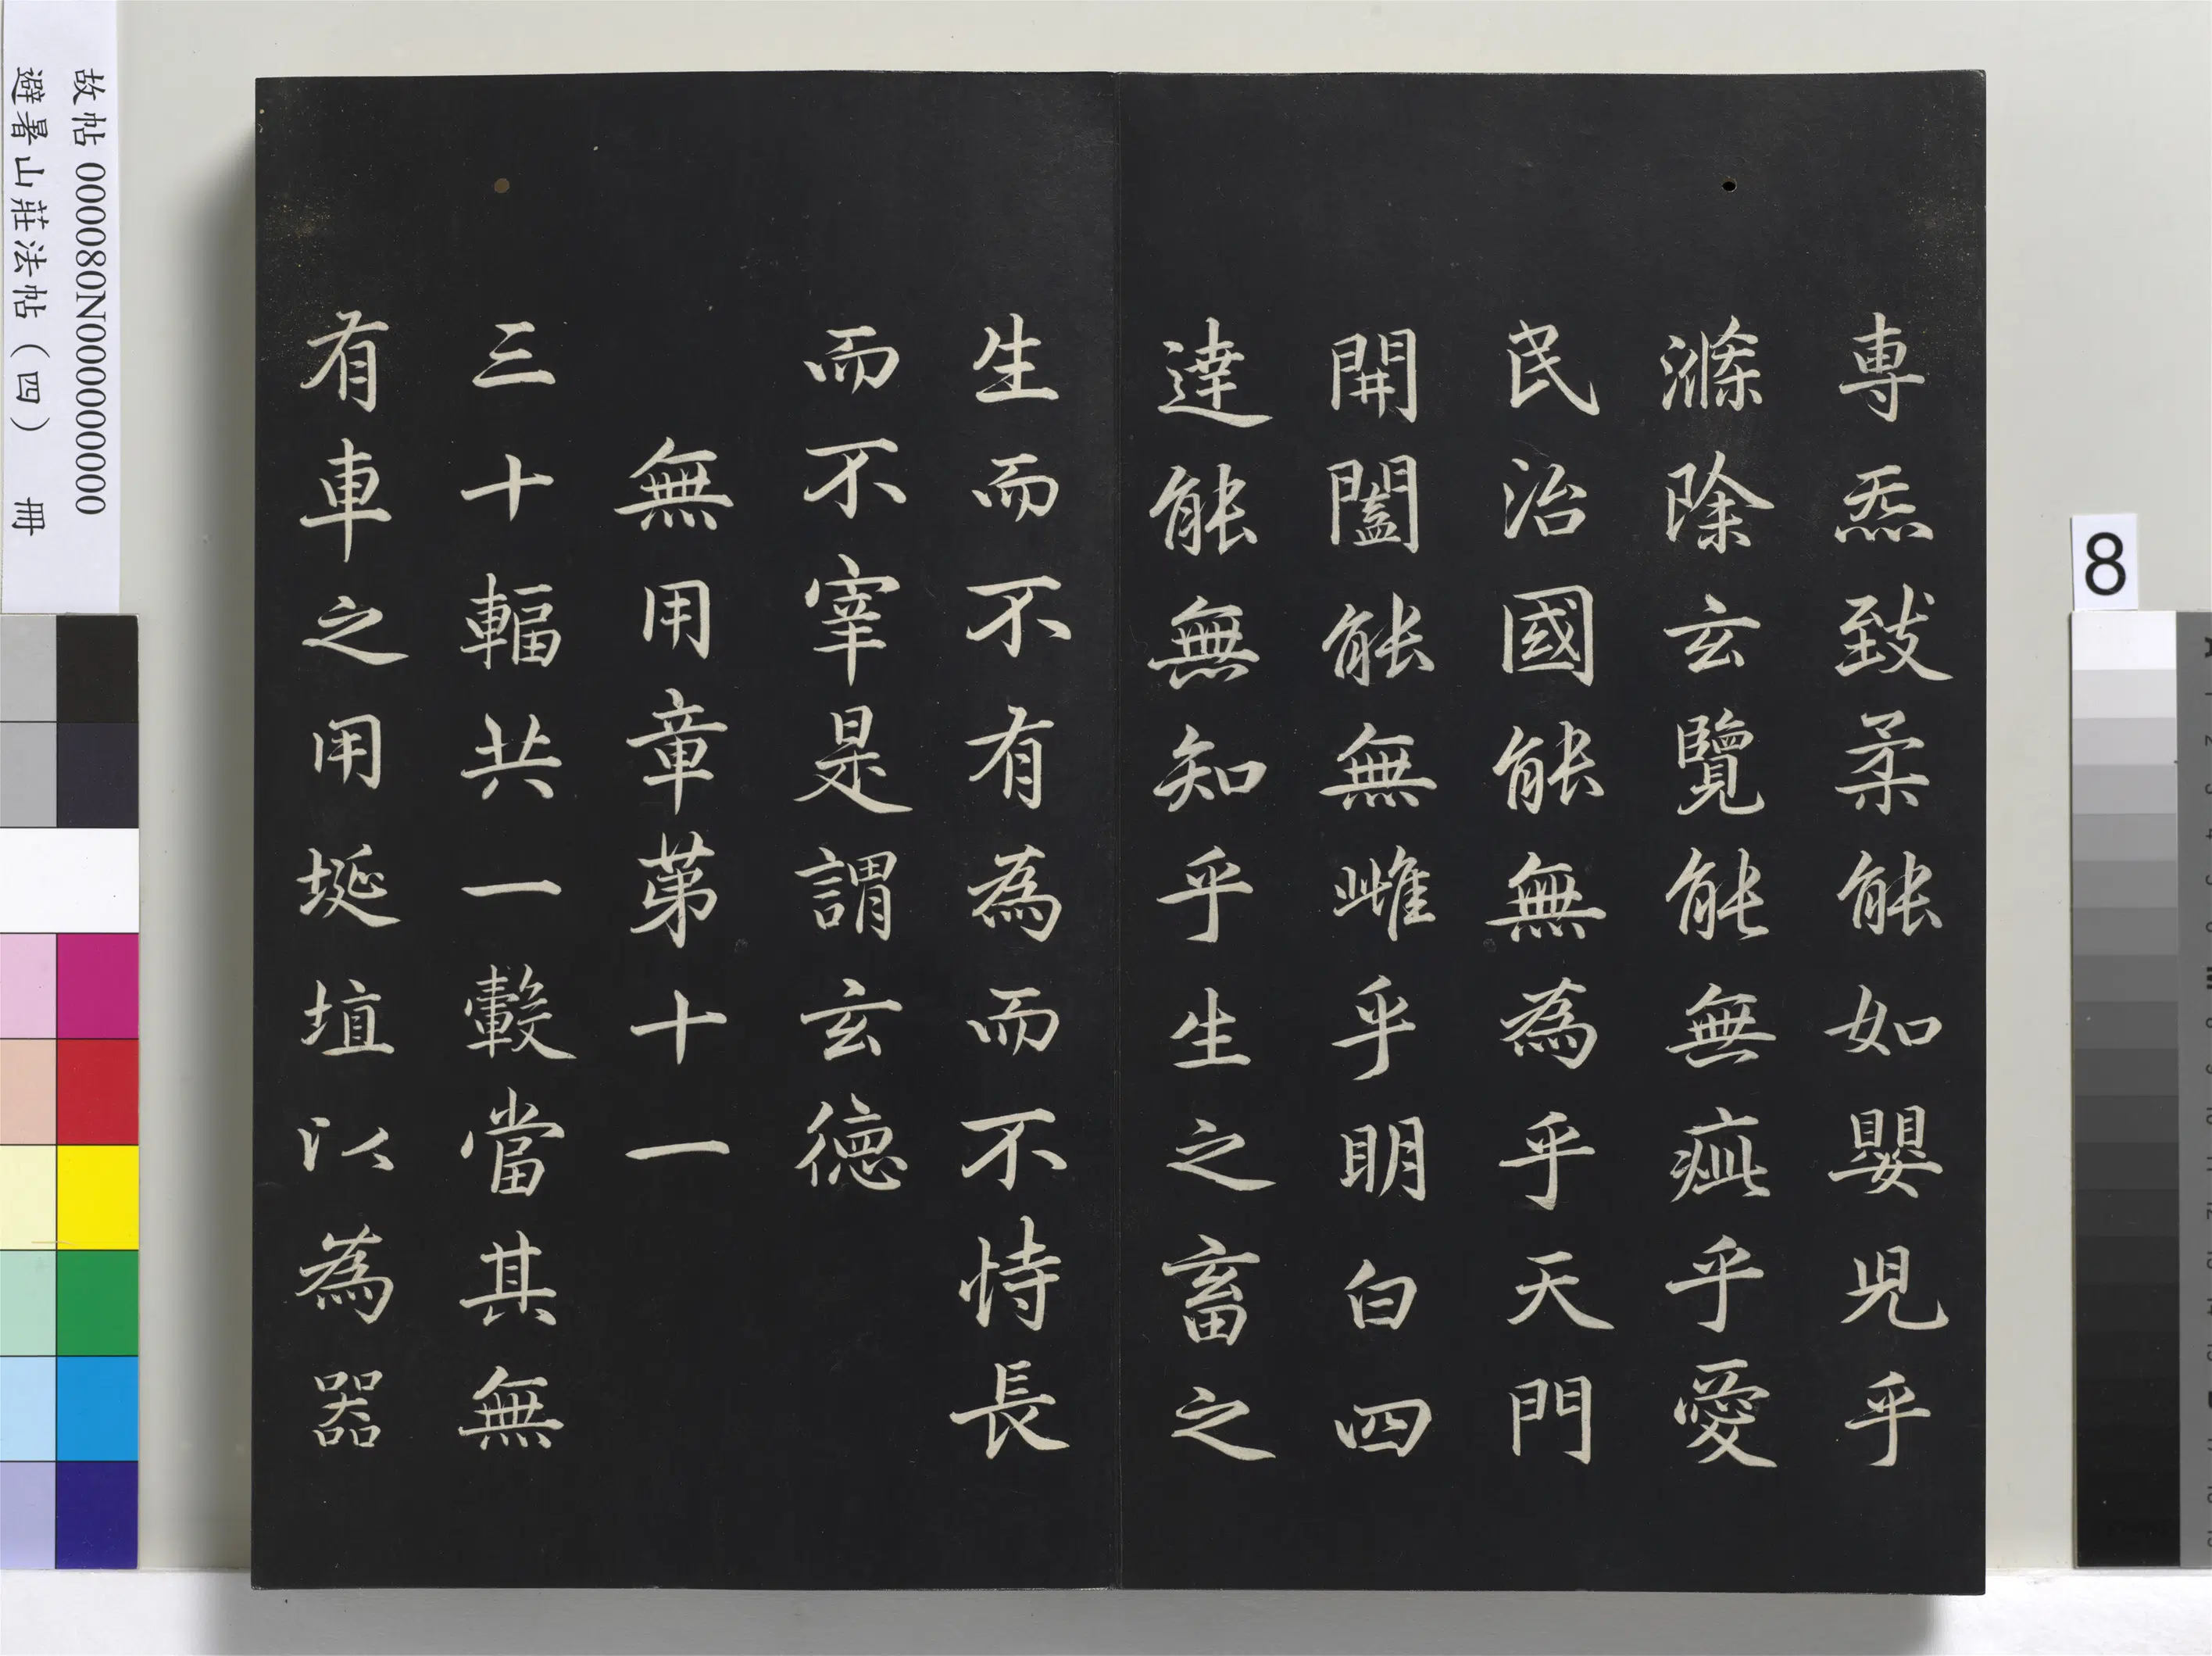 專炁致柔能如嬰兒乎
滌除玄覽能無疵乎愛
民治國能無為乎天門
開闔能無雌乎明白四
達能無知乎生之畜之
生而不有為而不恃長
而不宰是謂玄德
無用章第十一
三十輻共一轂當其無
有車之用埏埴以為器
故帖 000080N000000000
避暑山莊法帖(四) 冊
8